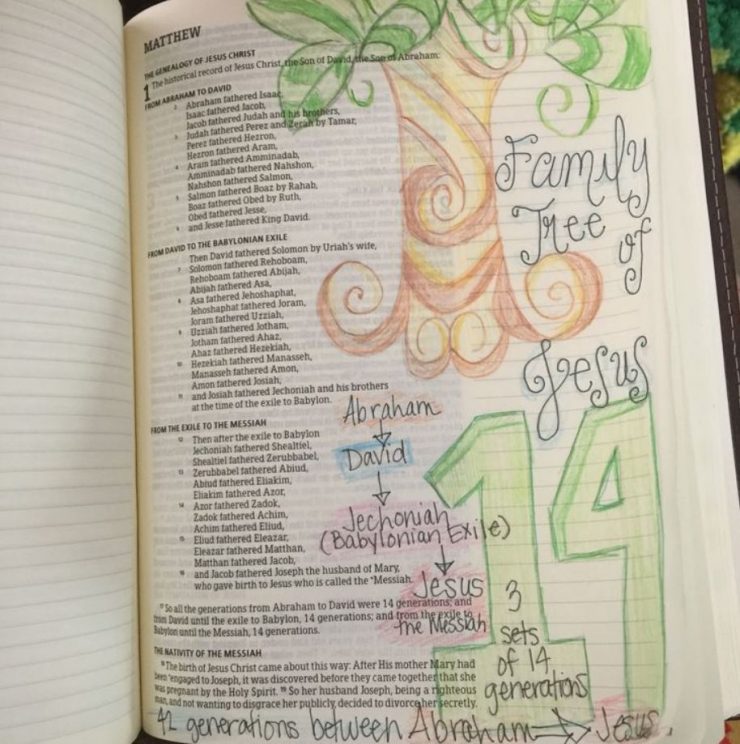 MATTHEW
THE GENEALOGY OF JESUS CHRIST
1 The historical record of Jesus Christ, the Son of David, the Son of Abraham:
FROM ABRAHAM TO DAVID
2 Abraham fathered Isaac,
Isaac fathered Jacob,
Jacob fathered Judah and his brothers,
3 Judah fathered Perez and Zerah by Tamar,
Perez fathered Hezron,
Hezron fathered Aram,
4 Aram fathered Amminadab,
Amminadab fathered Nahshon,
Nahshon fathered Salmon,
5 Salmon fathered Boaz by Rahab,
Boaz fathered Obed by Ruth,
Obed fathered Jesse,
6 and Jesse fathered King David.
FROM DAVID TO THE BABYLONIAN EXILE
Then David fathered Solomon by Uriah's wife,
7 Solomon fathered Rehoboam,
Rehoboam fathered Abijah,
Abijah fathered Asa,
8 Asa fathered Jehoshaphat,
Jehoshaphat fathered Joram,
Joram fathered Uzziah,
9 Uzziah fathered Jotham,
Jotham fathered Ahaz,
Ahaz fathered Hezekiah,
10 Hezekiah fathered Manasseh,
Manasseh fathered Amon,
Amon fathered Josiah,
11 and Josiah fathered Jechoniah and his brothers
at the time of the exile to Babylon.
FROM THE EXILE TO THE MESSIAH
12 Then after the exile to Babylon
Jechoniah fathered Shealtiel,
Shealtiel fathered Zerubbabel,
13 Zerubbabel fathered Abiud,
Abiud fathered Eliakim,
Eliakim fathered Azor,
14 Azor fathered Zadok,
Zadok fathered Achim,
Achim fathered Eliud,
15 Eliud fathered Eleazar,
Eleazar fathered Matthan,
Matthan fathered Jacob,
16 and Jacob fathered Joseph the husband of Mary,
who gave birth to Jesus who is called the *Messiah.
17 So all the generations from Abraham to David were 14 generations; and
from David until the exile to Babylon, 14 generations; and from the exile to
Babylon until the Messiah, 14 generations.
THE NATIVITY OF THE MESSIAH
18 The birth of Jesus Christ came about this way: After His mother Mary had
been *engaged to Joseph, it was discovered before they came together that she
was pregnant by the Holy Spirit. 19 So her husband Joseph, being a righteous
man, and not wanting to disgrace her publicly, decided to divorce her secretly.
Family
Tree
of
Jesus
Abraham
David
Jechoniah
(Babylonian Exile)
Jesus
the Messiah
14
3
sets
of 14
generations
42 generations between Abraham → Jesus